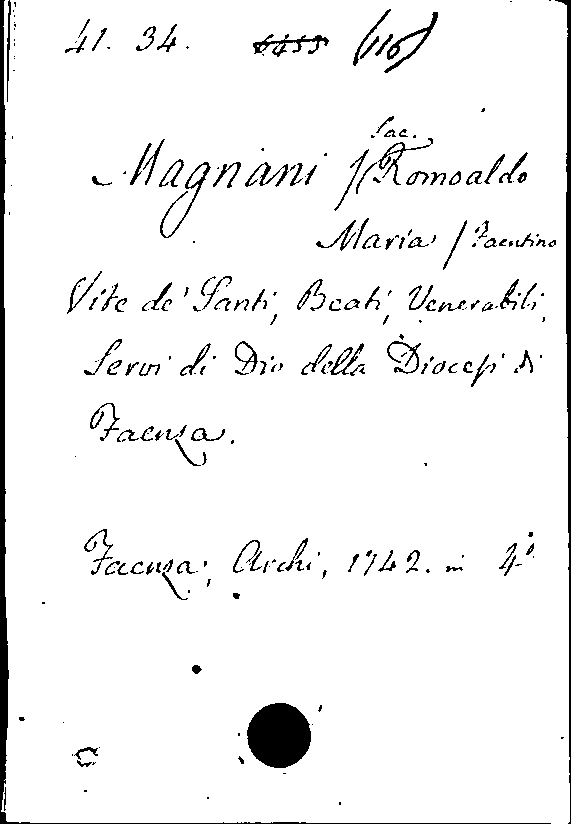 41. 34. 6455 (116)
Sac.
Magnani / Romoaldo
Maria / Faentino
Vite de' Santi, Beati, Venerabili,
Servi di Dio della Diocesi di
Faenza.
Faenza, Archi, 1742. in 4°.